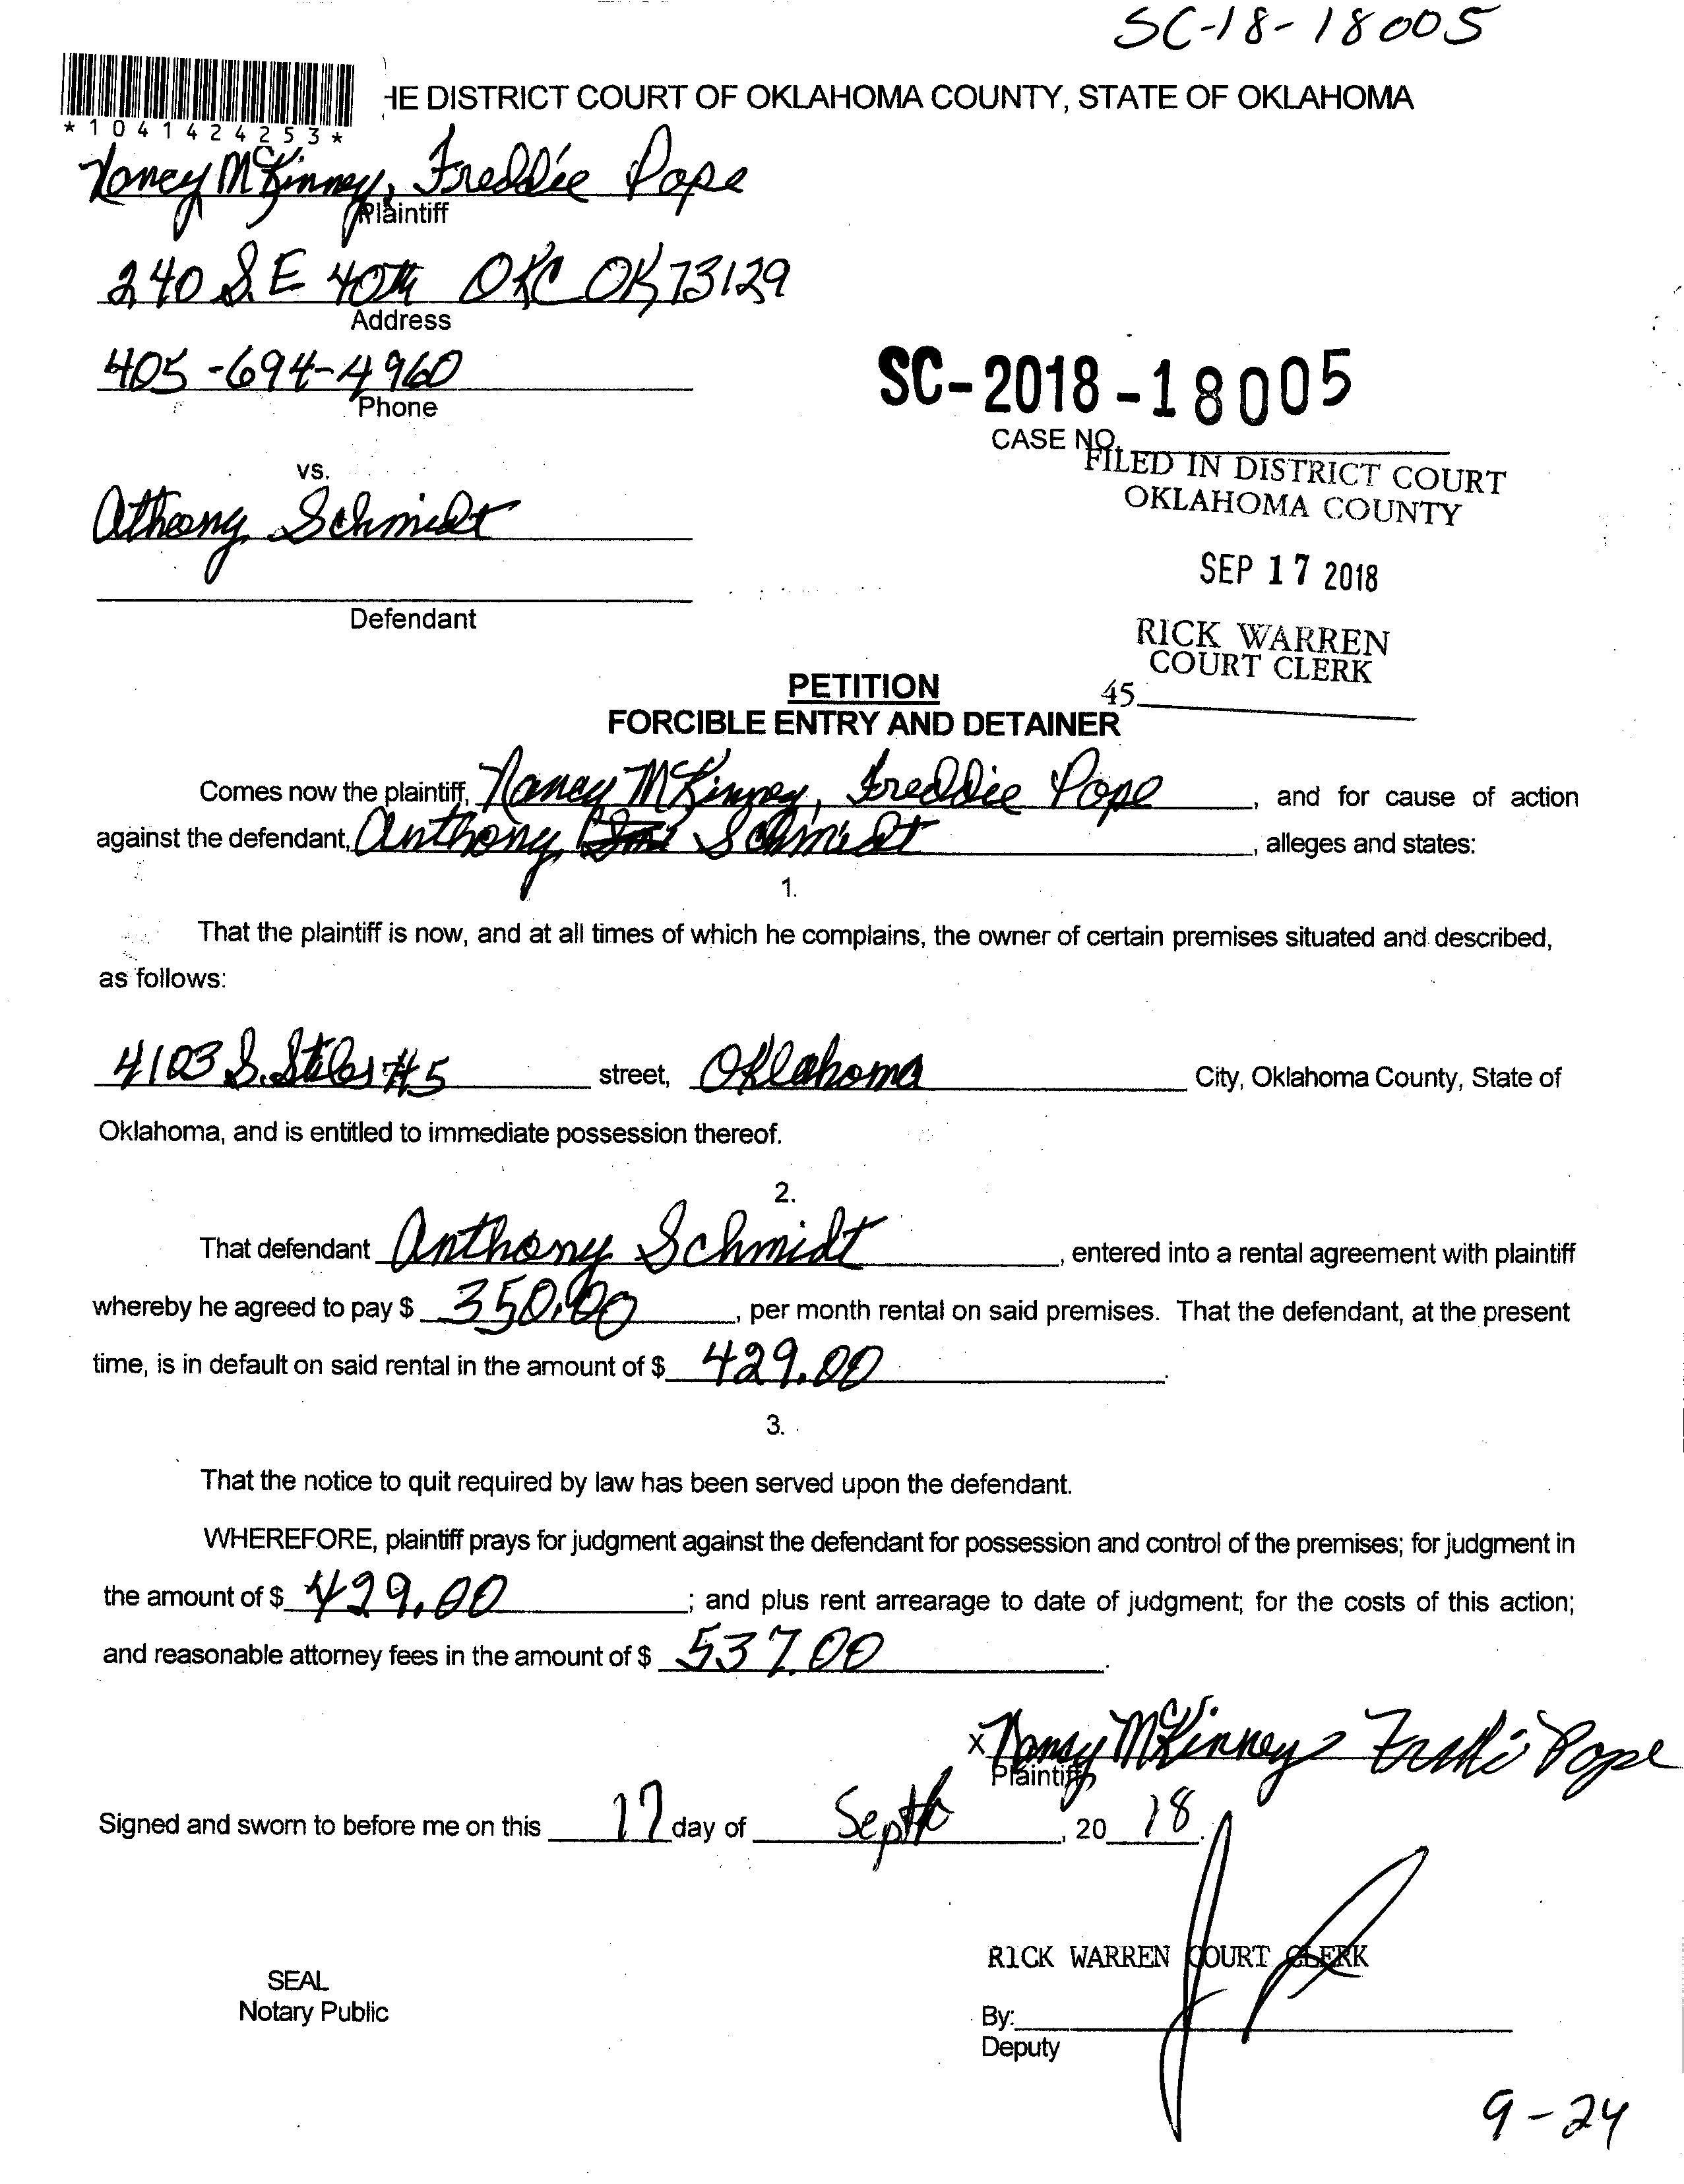 SC-18-18005
HE DISTRICT COURT OF OKLAHOMA COUNTY, STATE OF OKLAHOMA
*1041424253*
Nancy McKinney, Freddie Pope
Plaintiff
240 S.E 40th OKC OK 73129
Address
405-694-4960
Phone
SC-2018-18005
CASE NO.
FILED IN DISTRICT COURT
OKLAHOMA COUNTY
vs.
Athony Schmidt
SEP 17 2018
Defendant
RICK WARREN
COURT CLERK
45
PETITION
FORCIBLE ENTRY AND DETAINER
Comes now the plaintiff, Nancy McKinney, Freddie Pope, and for cause of action
against the defendant, Anthony Schmidt, alleges and states:
1.
That the plaintiff is now, and at all times of which he complains, the owner of certain premises situated and described,
as follows:
4103 S. Stiles #5 street, Oklahoma City, Oklahoma County, State of
Oklahoma, and is entitled to immediate possession thereof.
2.
That defendant Anthony Schmidt, entered into a rental agreement with plaintiff
whereby he agreed to pay $ 350.00, per month rental on said premises. That the defendant, at the present
time, is in default on said rental in the amount of $ 429.00.
3.
That the notice to quit required by law has been served upon the defendant.
WHEREFORE, plaintiff prays for judgment against the defendant for possession and control of the premises; for judgment in
the amount of $ 429.00; and plus rent arrearage to date of judgment; for the costs of this action;
and reasonable attorney fees in the amount of $ 537.00.
x Nancy McKinney Freddie Pope
Plaintiff
Signed and sworn to before me on this 17 day of Septh, 20 18.
RICK WARREN COURT CLERK
SEAL
Notary Public
By:
Deputy
9-24